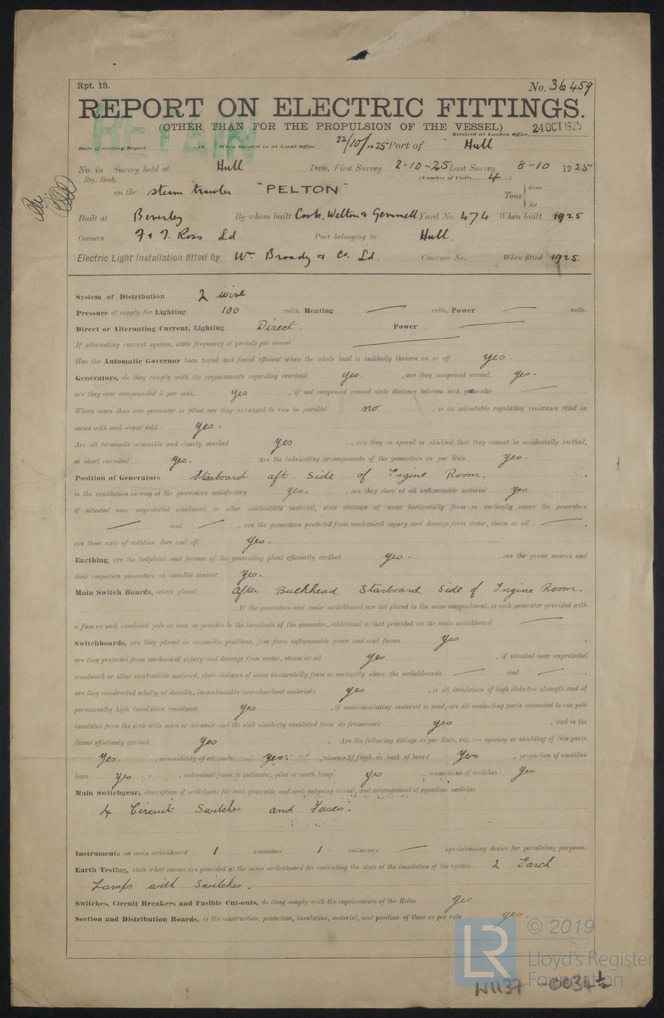 Rpt. 13.
No. 36459
REPORT ON ELECTRIC FITTINGS.
(OTHER THAN FOR THE PROPULSION OF THE VESSEL)
RETAIN
Received at London Office 24 OCT 1925
Date of writing Report 19 When handed in at Local Office 22/10/1925 Port of Hull
No. in Survey held at Hull Date, First Survey 2-10-25 Last Survey 8-10 1925
Reg. Book. (Number of Visits 4)
on the steam trawler "PELTON" Tons { Gross
Net
Built at Beverley By whom built Cook, Welton & Gemmell Yard No. 474 When built 1925
Owners F & T. Ross Ld Port belonging to Hull.
Electric Light Installation fitted by Wm Broady & Co. Ld Contract No. When fitted 1925.
System of Distribution 2 wire
Pressure of supply for Lighting 100 volts, Heating — volts, Power — volts.
Direct or Alternating Current, Lighting Direct. Power —
If alternating current system, state frequency of periods per second —
Has the Automatic Governor been tested and found efficient when the whole load is suddenly thrown on or off yes.
Generators, do they comply with the requirements regarding overload yes. , are they compound wound yes.
are they over compounded 5 per cent. yes , if not compound wound state distance between each generator —
Where more than one generator is fitted are they arranged to run in parallel no , is an adjustable regulating resistance fitted in
series with each shunt field yes.
Are all terminals accessible and clearly marked yes , are they so spaced or shielded that they cannot be accidentally earthed,
or short circuited yes. Are the lubricating arrangements of the generators as per Rule yes.
Position of Generators Starboard aft side of Engine Room.
is the ventilation in way of the generators satisfactory yes. , are they clear of all inflammable material yes
if situated near unprotected woodwork or other combustible material, state distance of same horizontally from or vertically above the generators
— and — , are the generators protected from mechanical injury and damage from water, steam or oil —
are their axes of rotation fore and aft yes.
Earthing, are the bedplates and frames of the generating plant efficiently earthed yes. are the prime movers and
their respective generators in metallic contact yes.
Main Switch Boards, where placed After Bulkhead Starboard side of Engine Room.
If the generators and main switchboard are not placed in the same compartment, is each generator provided with
a fuse on each insulated pole as near as possible to the terminals of the generator, additional to that provided on the main switchboard —
Switchboards, are they placed in accessible positions, free from inflammable gases and acid fumes yes
are they protected from mechanical injury and damage from water, steam or oil yes , if situated near unprotected
woodwork or other combustible material, state distance of same horizontally from or vertically above the switchboards — and —
are they constructed wholly of durable, incombustible non-absorbent materials yes , is all insulation of high dielectric strength and of
permanently high insulation resistance yes , if semi-insulating material is used, are all conducting parts connected to one pole
insulated from the slab with mica or micanite and the slab similarly insulated from its framework yes , and is the
frame effectively earthed yes . Are the following fittings as per Rule, viz. :— spacing or shielding of live parts
yes. , accessibility of all parts yes. , absence of fuses on back of board yes , proportion of omnibus
bars yes , individual fuses to voltmeter, pilot or earth lamp yes , connections of switches yes
Main Switchgear, description of switchgear for each generator and each outgoing circuit, and arrangement of equaliser switches
4 Circuit Switches and Fuses.
Instruments on main switchboard 1 ammeters 1 voltmeters — synchronising device for paralleling purposes.
Earth Testing, state what means are provided at the main switchboard for indicating the state of the insulation of the system 2 Earth
Lamps with Switches.
Switches, Circuit Breakers and Fusible Cut-outs, do they comply with the requirements of the Rules yes
Section and Distribution Boards, is the construction, protection, insulation, material, and position of these as per rule yes.
LR
© 2019
Lloyd's Register
Foundation
W1137-0034½